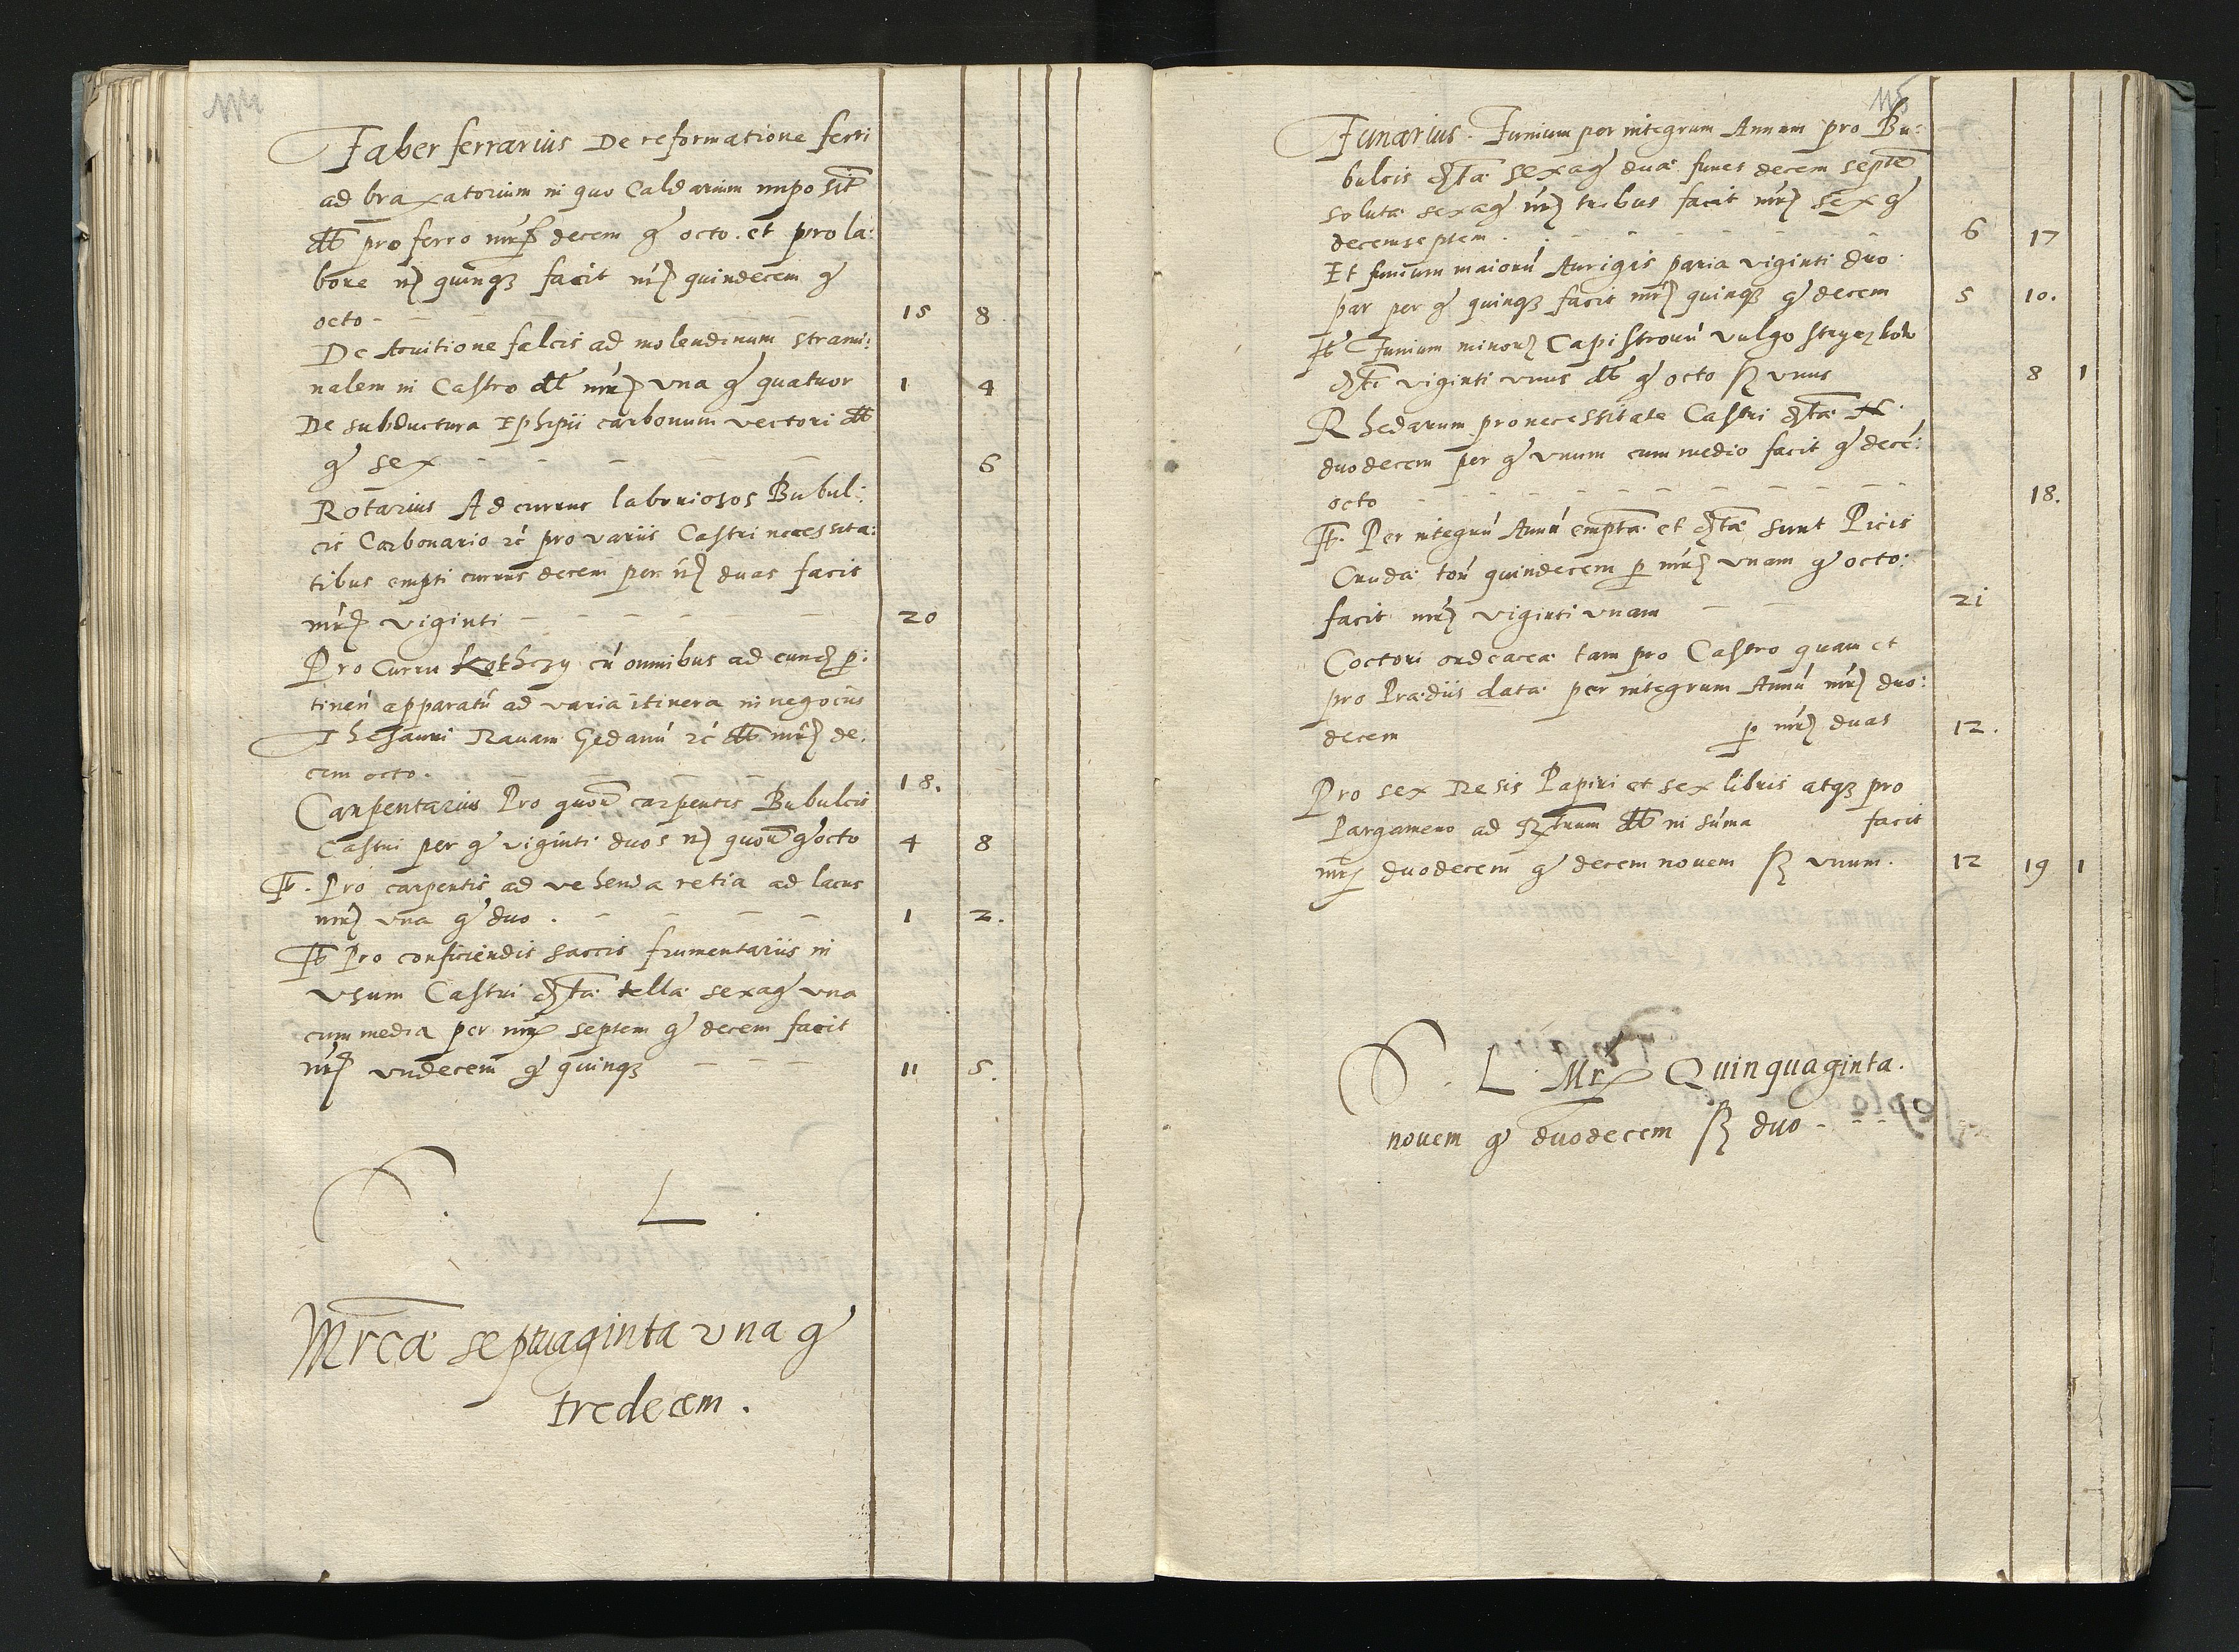 Faber ferrarius De reformatione ferri
ad braxatorium in quo Caldarium imposit
dt pro ferro mrc decem g octo. et pro la:
bore mr quinqȝ facit mr quindecem g
octo - 15 8
De Acuitione falcis ad molendinum strami:
nalem in Castro dt mr vna g quatuor 1 4
De subductura Ephipii carbonum vectori dt
g sex - - - 6
Rotarius Ad currus laboriosos Bubul:
cis Carbonario ꝛc pro variis Castri necessita:
tibus empti currus decem per mr duas facit
mr viginti - - - 20
Pro Curru Kothczy cū omnibus ad eund p:
tinen apparatū ad varia itinera in negociis
Thesauri Ravam Gedanū ꝛc dt mr de.
cem octo. - - 18.
Carpentarius Pro quor carpentis Bubulcis
Castri per g viginti duos mr quor g octo 4 8
It. Pro carpentis ad vehenda retia ad lacus
mr vna g duo . - - 1 2.
It Pro conficiendis saccis frumentariis in
vsum Castri dta tella sexag vna
cum media per mr septem g decem facit
mr vndecem g quinqȝ - - - 11 5.
S. L .
Mrcæ septuaginta vna g
tredecem .
115
Funarius. Funium per integrum Annum pro Bu:
bulcis dta sexag dua funes decem septē
soluta sexag mr tribus facit mr sex g
decemseptem . - - - 6 17
Et funium maiorū Aurigis paria viginti duo.
par per g quinqȝ facit mr quinqȝ g decem 5 10.
It Funium minor Capistrorū vulgo
dti viginti vnus dt g octo ſ vnus 8 1
Rhedarum pro necessitate Castri dta
duodecem per g vnum cum medio facit g decē:
octo - - - 18.
It. Per integrū Annū empta et dta sunt Picis
Cruda ton quindecem p mr vnam g octo:
facit mr viginti vnam - - 21
Coctori ordeacea tam pro Castro quam et
pro Prædiis data per integrum Annū mr duo:
decem p mr duas 12.
Pro sex Resis Papiri et sex libris atqȝ pro
Pargameno ad Rtrum dt in sūma facit
mr duodecem g decem novem ſ vnum. 12 19 1
S. L Mr Quinquaginta.
novem g duodecem ſ duo - - -